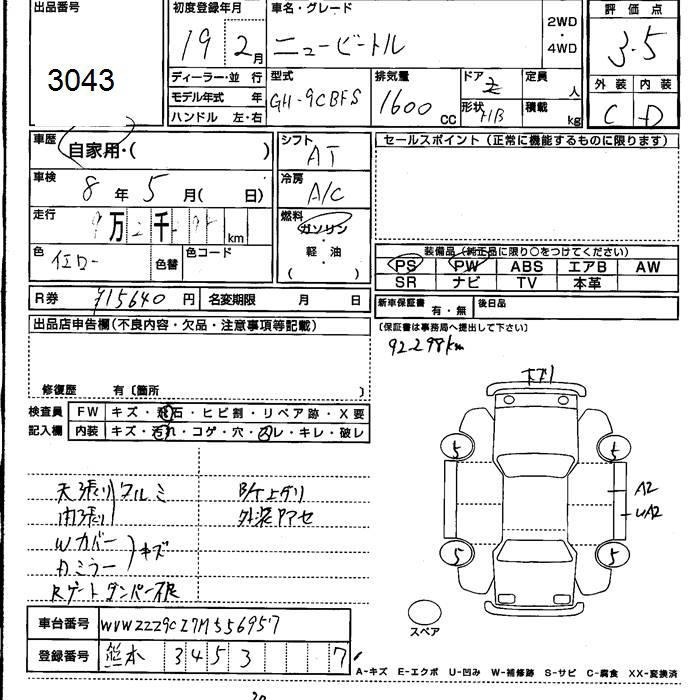 出品番号 初度登録年月 車名・グレード 評価点
3043 19 2月 ニュービートル 2WD・4WD 3.5
ディーラー・並行 型式 排気量 ドア 定員 人 外装 内装
モデル年式 年 GH-9CBFS 1600cc 2 C D
ハンドル 左・右 形状 H/B 積載 kg
車歴 自家用・( ) シフト AT セールスポイント(正常に機能するものに限ります)
車検 8年 5月( 日) 冷房 A/C
走行 9万2千 km 燃料 ガソリン・軽油・( )
色 イエロー 色替 色コード
装備品(純正品に限り○をつけてください)
PS PW ABS エアB AW
SR ナビ TV 本革
R券 ¥15640円 名変期限 月 日 新車保証書 有・無 後日品
出品店申告欄(不良内容・欠品・注意事項等記載) (保証書は事務局へ提出して下さい)
92298km
修復歴 有〔箇所 〕
検査員 FW キズ・飛石・ヒビ割・リペア跡・X要
記入欄 内装 キズ・汚れ・コゲ・穴・スレ・キレ・破レ
天張り タルミ B/T上グリ
内張り 外装アセ
Wカバー キズ
Dミラー
Rゲートダンパー不良
キズリ
5 5
A2
UA2
5 5
スペア
車台番号 WVWZZZ9CZ7M556957
登録番号 熊本 345 3 7
A-キズ E-エクボ U-凹み W-補修跡 S-サビ C-腐食 XX-変換済